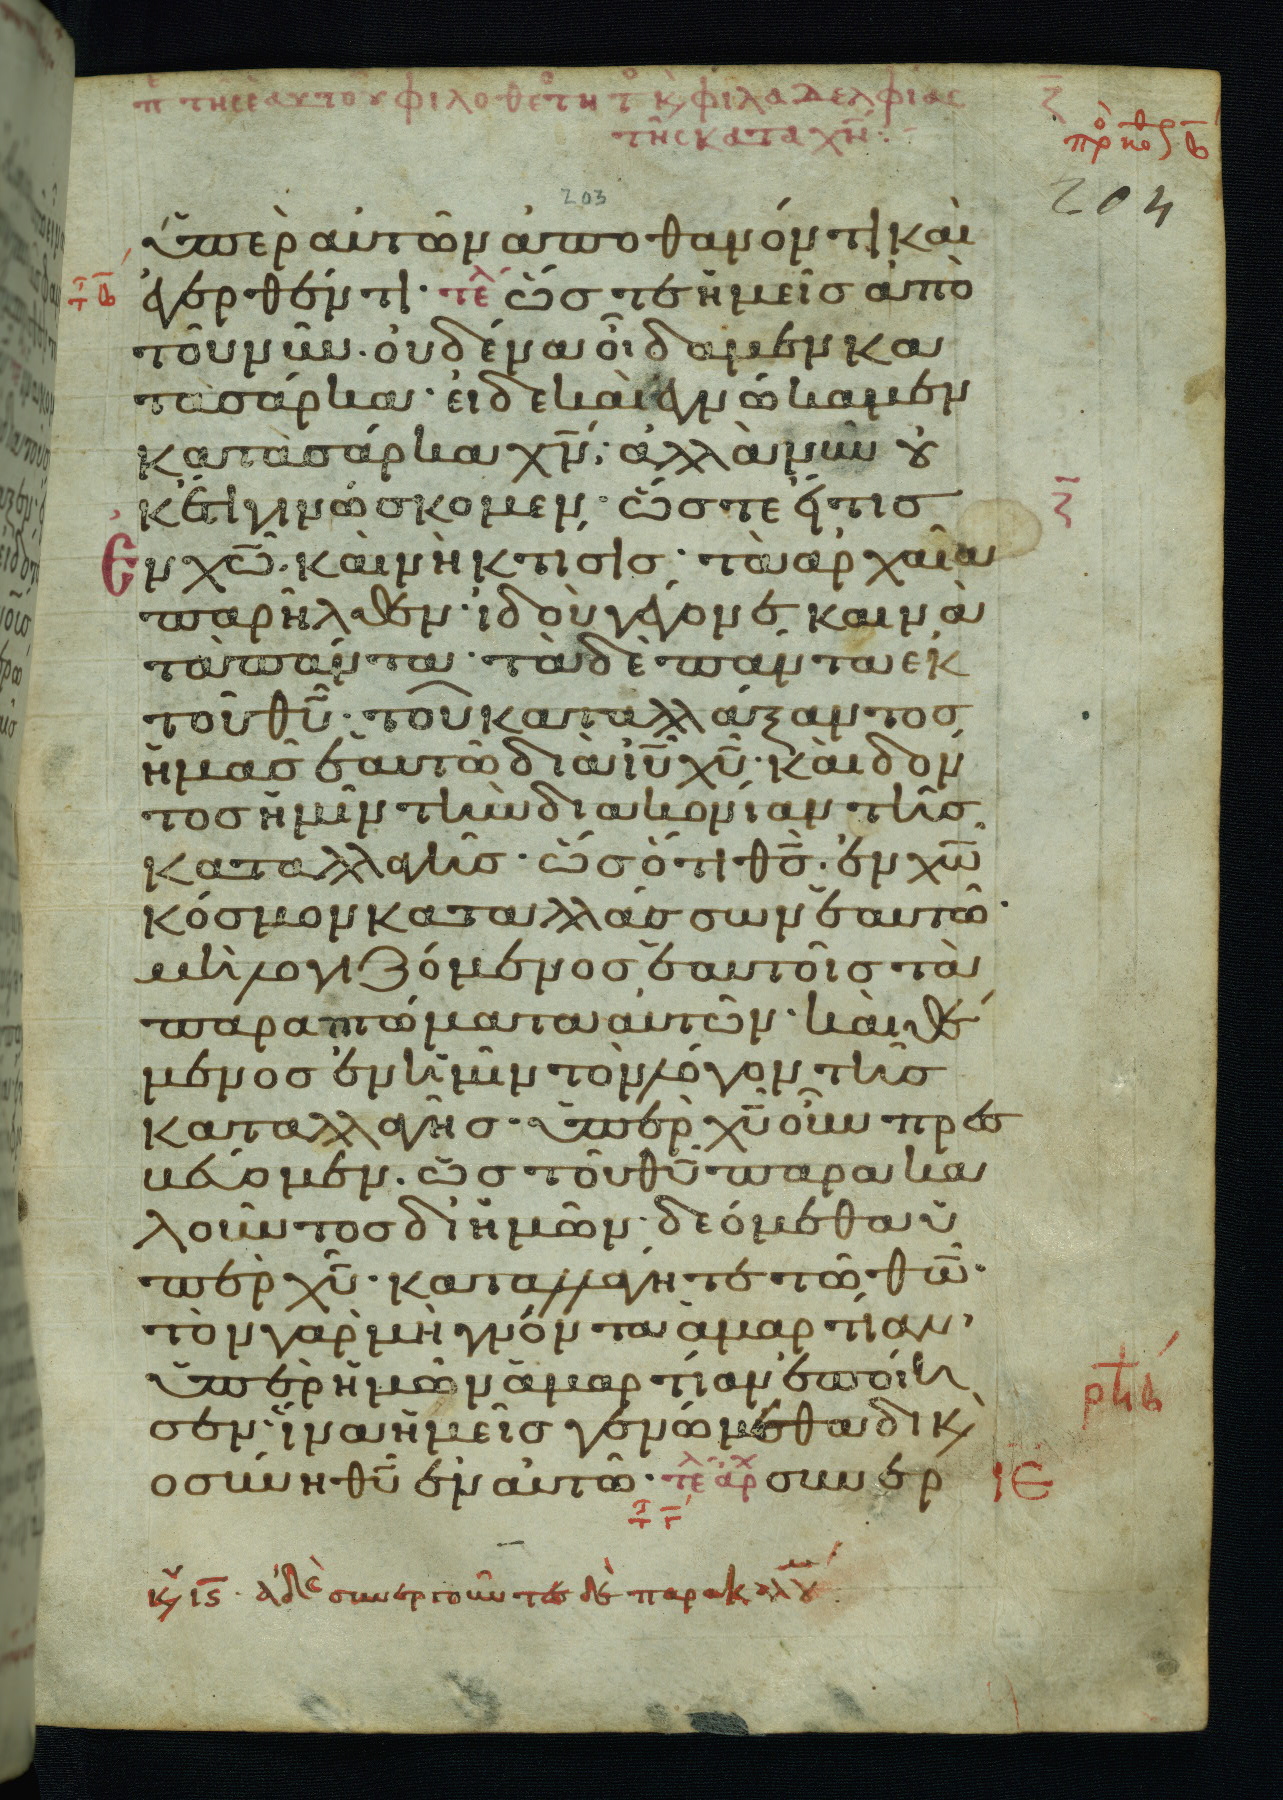 π τῆς ἑαυτοῦ φιλοθεότητο κ, φιλαδελφίας ζ
τῆς κατα χν̄:
πρ κο β
203
204
ὑπὲρ αὐτῶν ἀποθανόντι καὶ
ἐγερθέντι· τε ὥστε ἡμεῖς ἀπὸ
τοῦ νῦν· οὐδένα οἴδαμεν κα
τὰ σάρκα· εἰ δὲ καὶ ἐγνώκαμεν
κατὰ σάρκα χν̄· ἀλλὰ νῦν ȣ
κ ἔτι γινώσκομεν· ὥστε εἴ τις ζ
Ἐν χω̄· καινὴ κτίσις· τὰ ἀρχαῖα
παρῆλθεν· ἰδοὺ γέγονε καινὰ
τὰ πάντα· τὰ δὲ πάντα ἐκ
τοῦ θῡ· τοῦ καταλλάξαντος
ἡμᾶς ἑαυτῶ διὰ ῑῡ χῡ· καὶ δόν
τος ἡμῖν τὴν διακονίαν τῆς
καταλλαγῆς· ὡς ὅτι θς̄· ἐν χω̄
κόσμον καταλλάσσων ἑαυτῶ·
μὴ λογιζόμενος ἑαυτοῖς τὰ
παραπτώματα αὐτῶν· καὶ θέ
μενος ἐν ἡμῖν τὸν λόγον τῆς
καταλλαγῆς· ὑπὲρ χῡ οὖν πρεσ
βεύομεν· ὡς τοῦ θῡ παρακα
λοῦντος δι ἡμῶν· δεόμεθα ὑ
πὲρ χῡ· καταλλάγητε τῶ θω̄·
τὸν γὰρ μὴ γνόντα ἁμαρτίαν·
ὑπὲρ ἡμῶν ἁμαρτίαν ἐποίη
σεν· ἵνα ἡμεῖς γενώμεθα δικ,
οσύνη θῡ ἐν αὐτῶ· τε ἀρ συνερ ιε
τ γ
κ, ις· ἀδε συνεργοῦντες δὲ παρακαλȣ